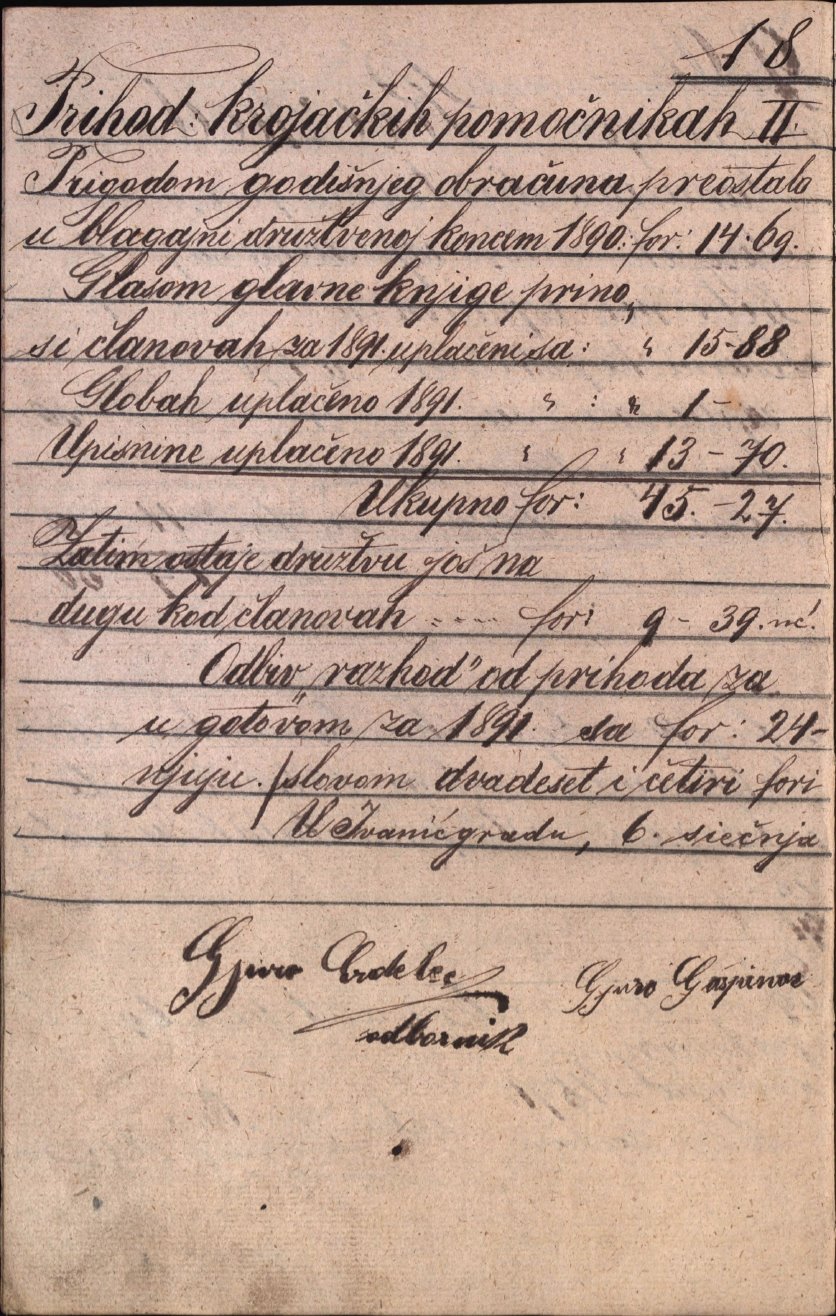 18
Prihod: krojačkih pomoćnikah II.
Prigodom godišnjeg obračuna preostalo
u blagajni družtvenoj koncem 1890: for: 14.69.
Glasom glavne knjige prino„
si članovah za 1891. uplaćeni sa: " 15-88
Globah uplaćeno 1891. " : " 1 -
Upisnine uplaćeno 1891. " " 13 - 70.
Ukupno for: 45. - 27.
Zatim ostaje družtvu još na
dugu kod članovah .... for: 9 - 39. nč.
Odbiv „razhod" od prihoda za
u gotovom za 1891. sa for: 24-
njuju. /slovom dvadeset i četiri fori
U Ivanićgradu, 6. siečnja
Gjuro
odbornik
Gjuro